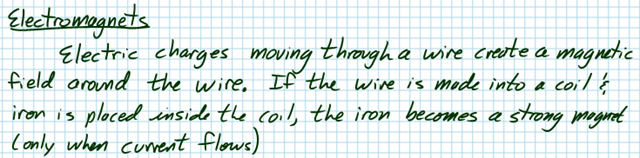 Electromagnets
Electric charges moving through a wire create a magnetic
field around the wire. If the wire is made into a coil &
iron is placed inside the coil, the iron becomes a strong magnet
(only when current flows)